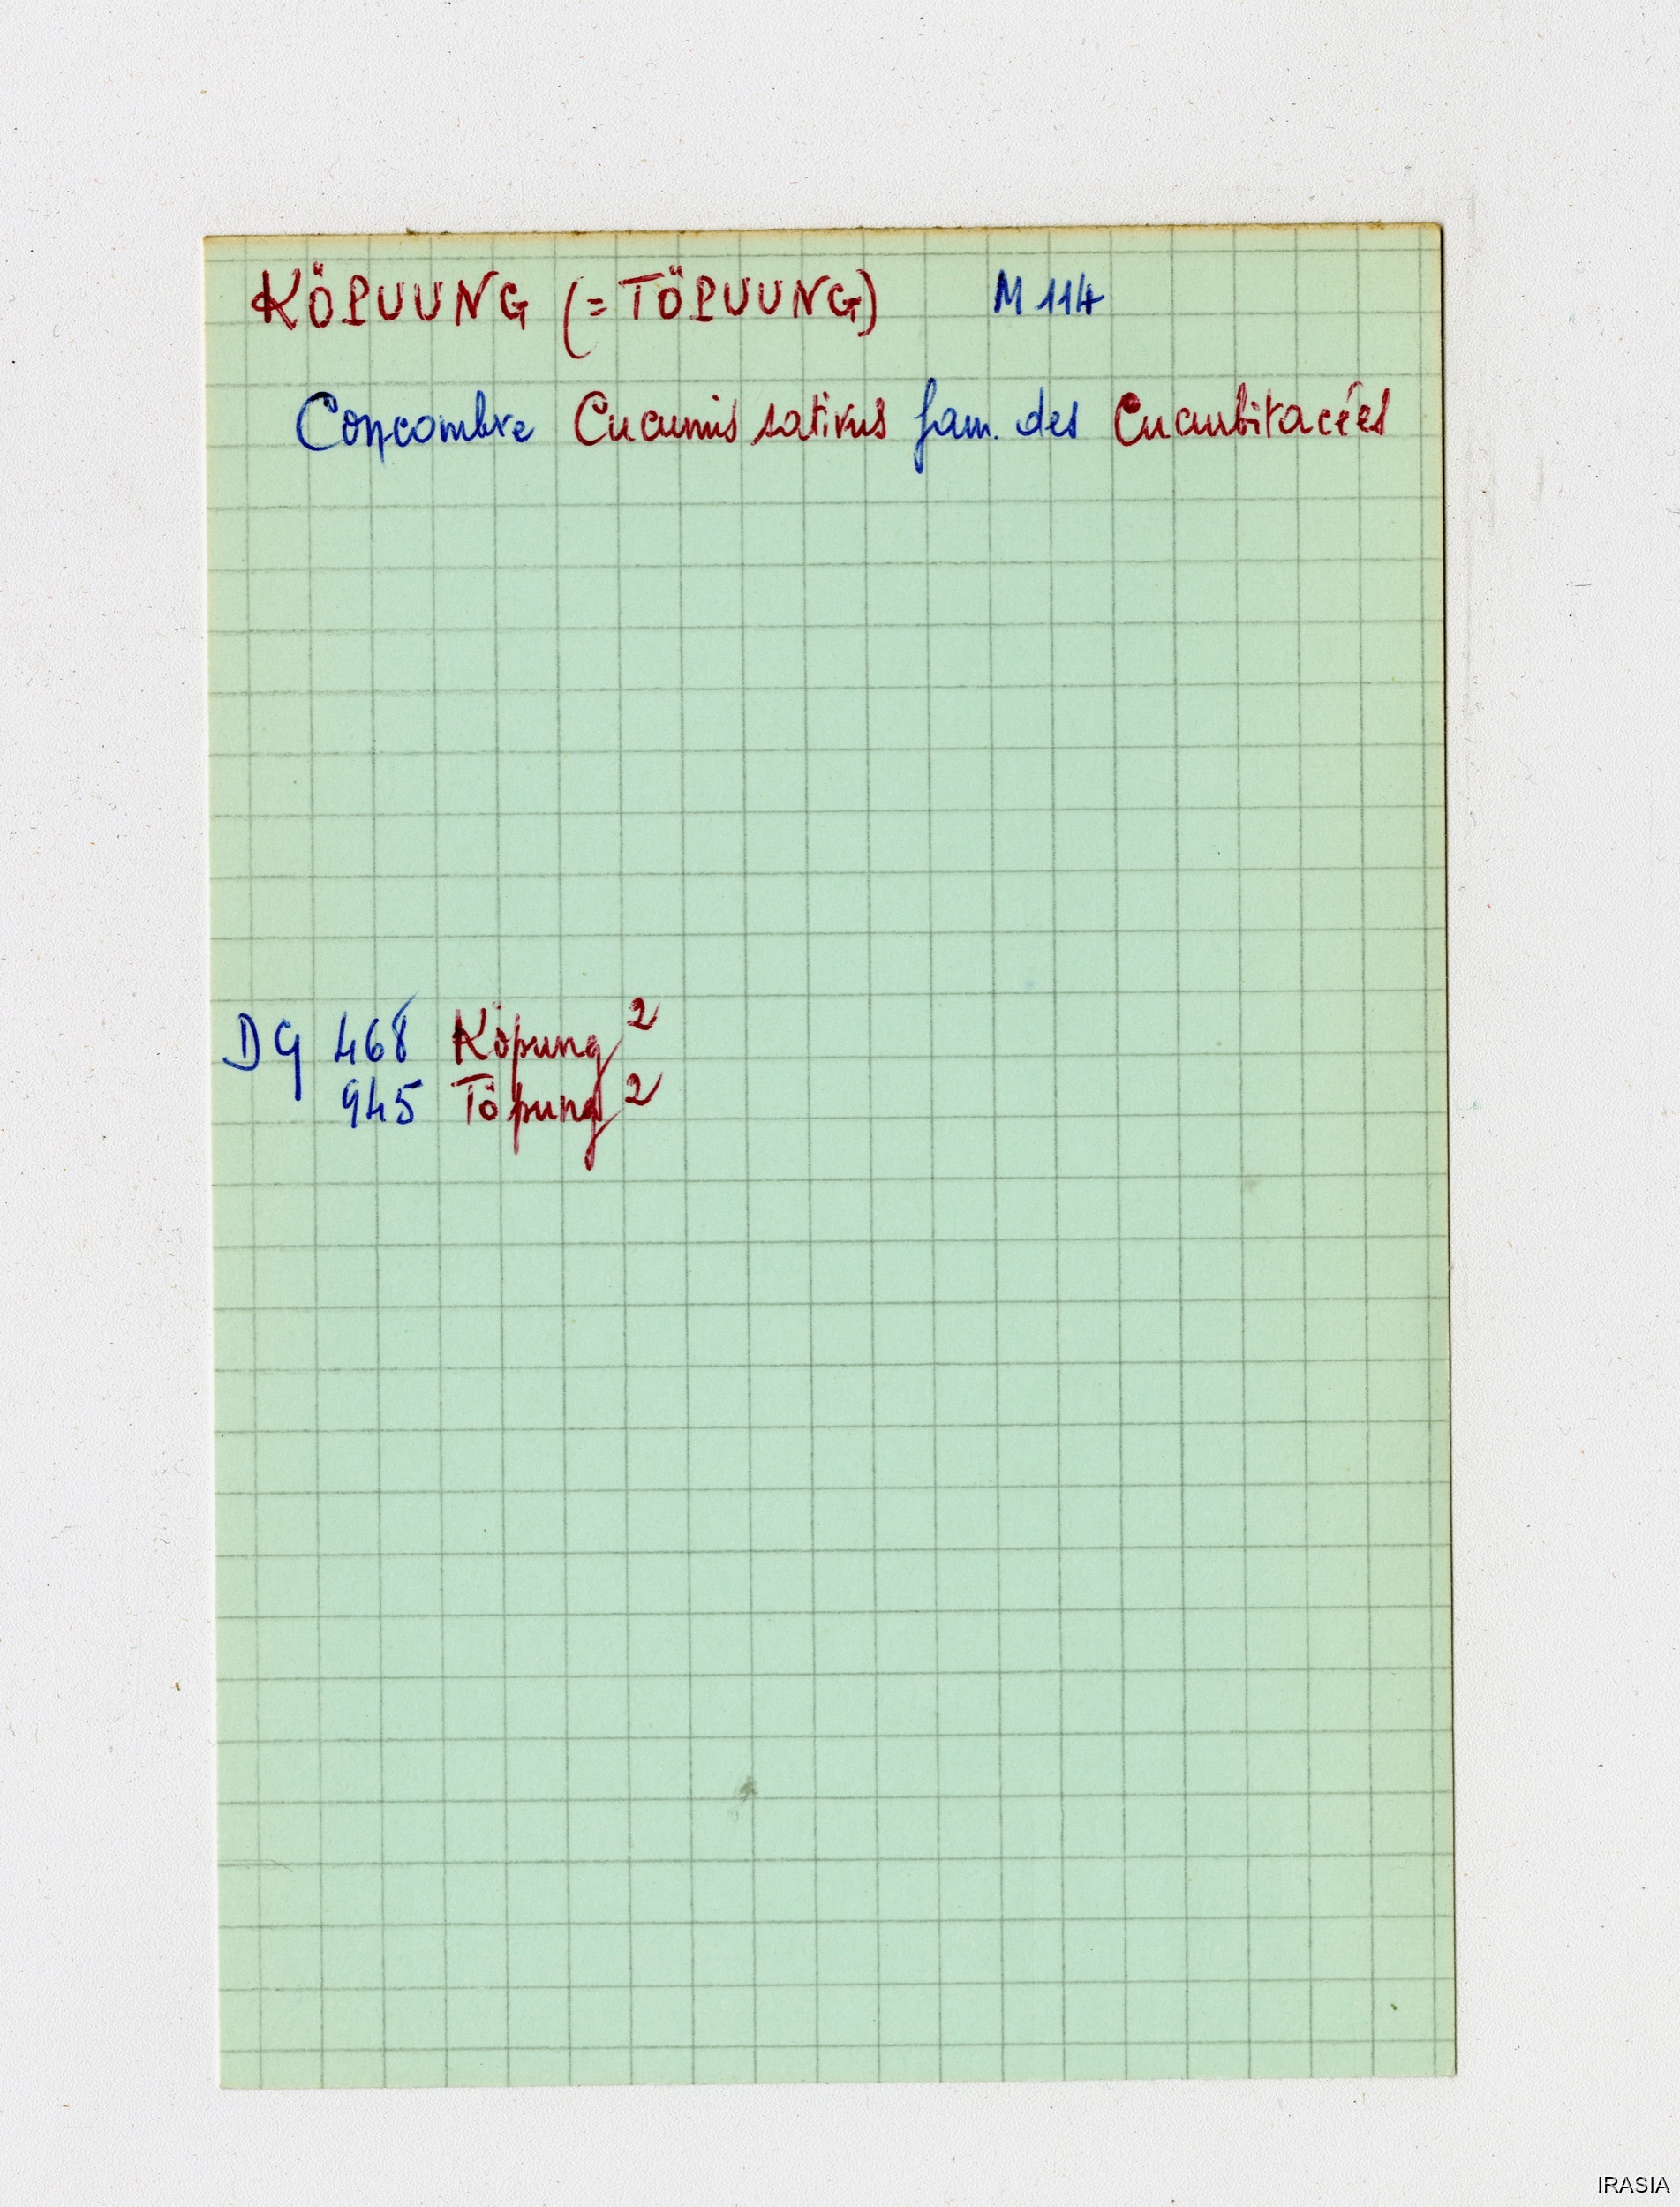 KÖPUUNG (= TÖPUUNG) M 114
Concombre Cucumis sativus fam. des Cucurbitacées
DG 468 Köpung 2
945 Töpung 2
IRASIA